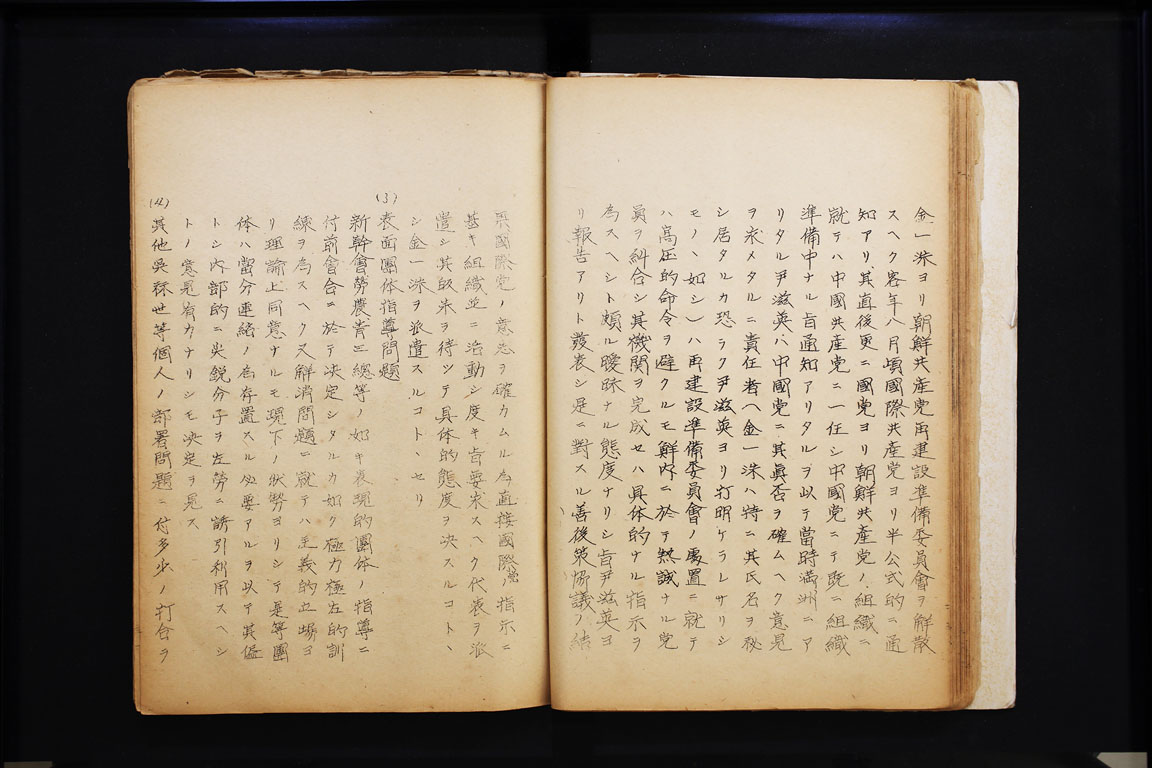 金一洙ヨリ朝鮮共産党再建設準備委員會ヲ解散
スヘク客年八月頃國際共産党ヨリ半公式的ニ通
知アリ其直後更ニ國党ヨリ朝鮮共産党ノ組織ニ
就テハ中國共産党ニ一任シ中國党ニテ既ニ組織
準備中ナル旨通知アリタルヲ以テ當時満洲ニア
リタル尹滋英ハ中國党ニ其眞否ヲ確ムヘク意見
ヲ求メタルニ責任者(金一洙ハ特ニ其氏名ヲ秘
シ居タルカ恐ラク尹滋英ヨリ打明ケラレサリシ
モノヽ如シ)ハ再建設準備委員會ノ處置ニ就テ
ハ高圧的命令ヲ避クルモ鮮内ニ於テ熱誠ナル党
員ヲ糾合シ其機関ヲ完成セハ具体的ナル指示ヲ
為スヘシト頗ル曖昧ナル態度ナリシ旨尹滋英ヨ
リ報告アリト發表シ是ニ對スル善後策協議ノ結
果國際党ノ意志ヲ確カムル為直接國際党ノ指示ニ
基キ組織並ニ活動シ度キ旨要求スヘク代表ヲ派
遣シ其敀来ヲ待ツテ具体的態度ヲ決スルコトヽ
シ金一洙ヲ派遣スルコトヽセリ
(3)
表面團体指導問題
新幹會勞農青三總等ノ如キ表現的團体ノ指導ニ
付前會合ニ於テ決定シタルカ如ク極力極左的訓
練ヲ為スヘク又解消問題ニ就テハ主義的立場ヨ
リ理論上同意ナルモ現下ノ状勢ヨリシテ是等團
体ハ當分連絡ノ為存置スル必要アルヲ以テ其儘
トシ内部的ニ尖鋭分子ヲ左勞ニ誘引利用スヘシ
トノ意見有力ナリシモ決定ヲ見ス
(4)
其他吳秝世等個人ノ部署問題ニ付多少ノ打合ヲ